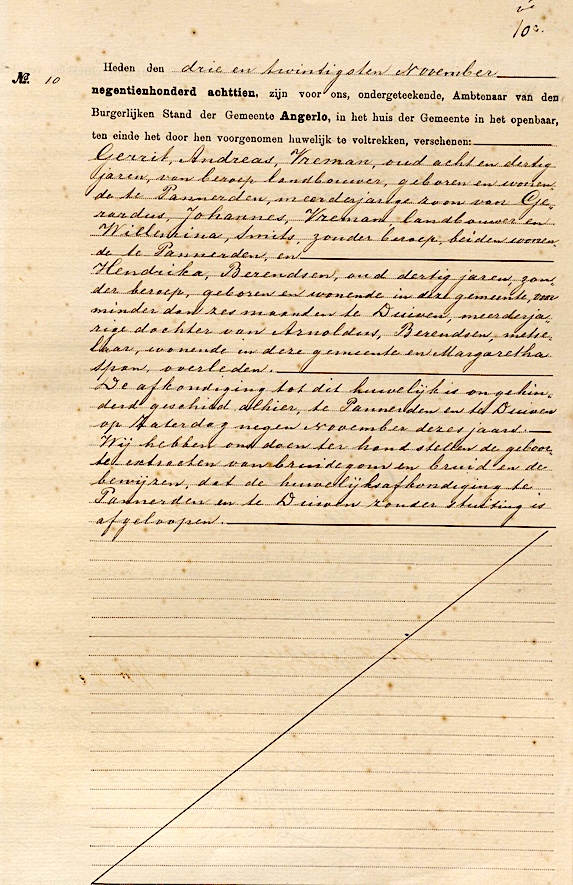 10c.
Nº. 10
Heden den drie en twintigsten November
negentienhonderd achttien, zijn voor ons, ondergeteekende, Ambtenaar van den
Burgerlijken Stand der Gemeente Angerlo, in het huis der Gemeente in het openbaar,
ten einde het door hen voorgenomen huwelijk te voltrekken, verschenen:
Gerrit, Andreas, Vreman, oud acht en dertig
jaren, van beroep landbouwer, geboren en wonen-
de te Pannerden, meerderjarige zoon van Ge-
rardus, Johannes, Vreman landbouwer en
Willemina, Smits, zonder beroep, beiden wonen-
de te Pannerden, en
Hendrika, Berendsen, oud dertig jaren, zon-
der beroep, geboren en wonende in deze gemeente, voor
minder dan zes maanden te Duiven, meerderja-
rige dochter van Arnoldus, Berendsen, metse-
laar, wonende in deze gemeente en Margaretha
Span, overleden.
De afkondiging tot dit huwelijk is ongehin-
derd geschied alhier, te Pannerden en te Duiven
op Zaterdag negen November dezes jaars.
Wij hebben ons doen ter hand stellen de geboor-
te extracten van bruidegom en bruid en de
bewijzen, dat de huwelijksafkondiging te
Pannerden en te Duiven zonder stuiting is
afgeloopen.